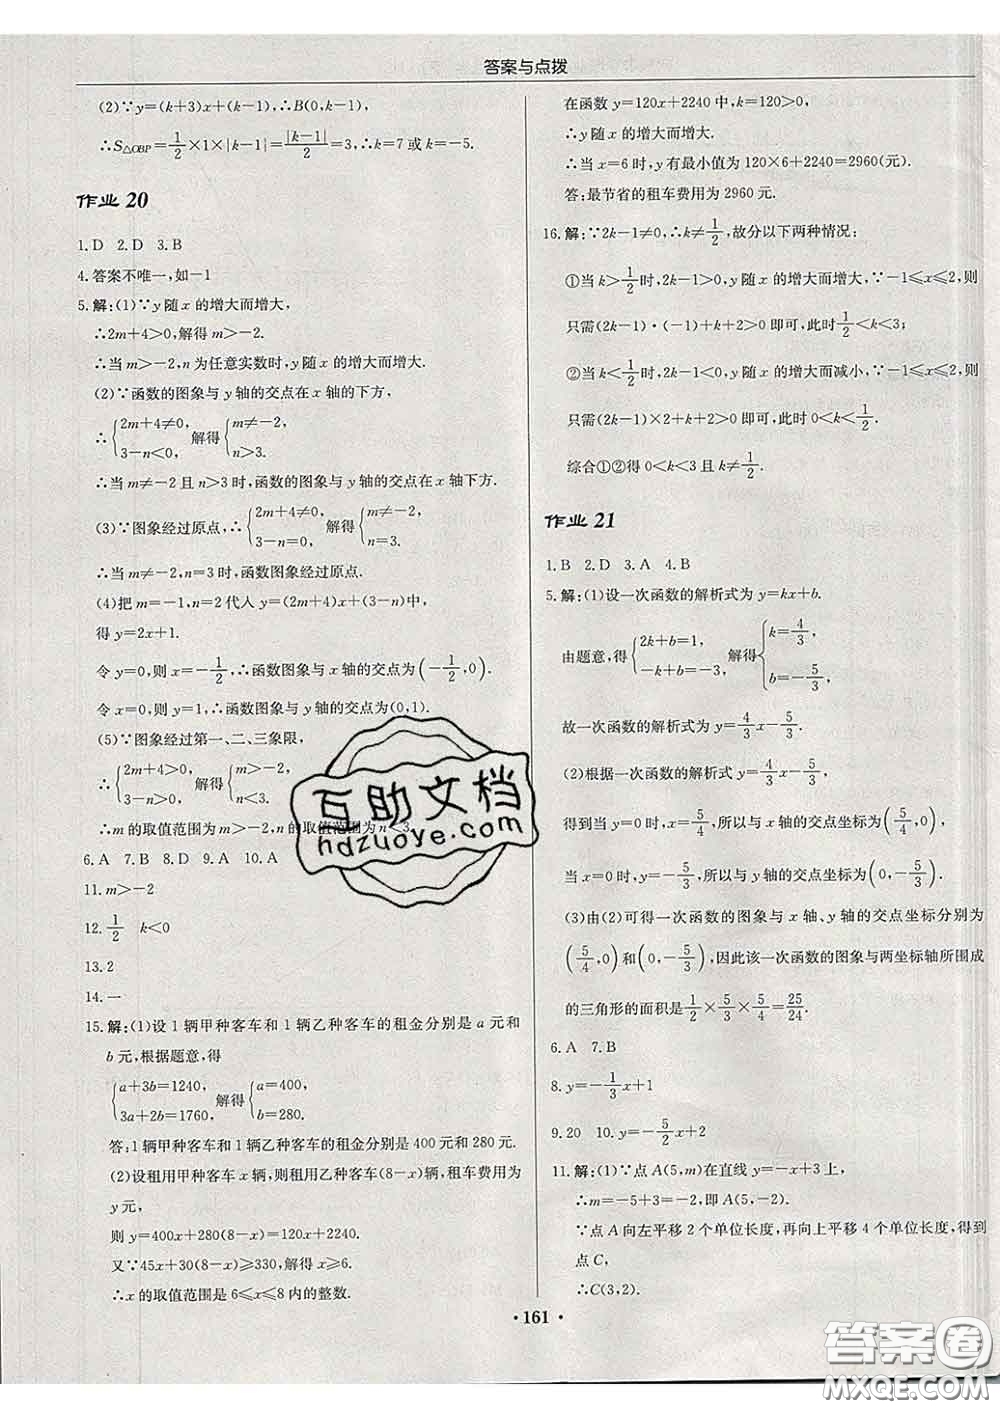 答案与点拨
(2)∵y=(k+3)x+(k-1),∴B(0,k-1),
∴S△OBP=1/2×1×|k-1|=|k-1|/2=3,∴k=7 或 k=-5.
作业 20
1.D 2.D 3.B
4.答案不唯一,如-1
5.解:(1)∵y 随 x 的增大而增大,
∴2m+4>0,解得 m>-2.
∴当 m>-2,n 为任意实数时,y 随 x 的增大而增大.
(2)∵函数的图象与 y 轴的交点在 x 轴的下方,
∴{2m+4≠0, 3-n<0, 解得{m≠-2, n>3.
∴当 m≠-2 且 n>3 时,函数的图象与 y 轴的交点在 x 轴下方.
(3)∵图象经过原点,∴{2m+4≠0, 3-n=0, 解得{m≠-2, n=3.
∴当 m≠-2,n=3 时,函数图象经过原点.
(4)把 m=-1,n=2 代入 y=(2m+4)x+(3-n)中,
得 y=2x+1.
令 y=0,则 x=-1/2,∴函数图象与 x 轴的交点为(-1/2,0).
令 x=0,则 y=1,∴函数图象与 y 轴的交点为(0,1).
(5)∵图象经过第一、二、三象限,
∴{2m+4>0, 3-n>0, 解得{m>-2, n<3.
∴m 的取值范围为 m>-2,n 的取值范围为 n<3.
6.A 7.B 8.D 9.A 10.A
11.m>-2
12.1/2 k<0
13.2
14.一
15.解:(1)设 1 辆甲种客车和 1 辆乙种客车的租金分别是 a 元和
b 元,根据题意,得
{a+3b=1240, 3a+2b=1760, 解得{a=400, b=280.
答:1 辆甲种客车和 1 辆乙种客车的租金分别是 400 元和 280 元.
(2)设租用甲种客车 x 辆,则租用乙种客车(8-x)辆,租车费用为
y 元,
则 y=400x+280(8-x)=120x+2240.
又∵45x+30(8-x)≥330,解得 x≥6.
∴x 的取值范围是 6≤x≤8 内的整数.
在函数 y=120x+2240 中,k=120>0,
∴y 随 x 的增大而增大.
∴当 x=6 时,y 有最小值为 120×6+2240=2960(元).
答:最节省的租车费用为 2960 元.
16.解:∵2k-1≠0,∴k≠1/2,故分以下两种情况:
①当 k>1/2 时,2k-1>0,y 随 x 的增大而增大,∵-1≤x≤2,则
只需(2k-1)·(-1)+k+2>0 即可,此时 1/2<k<3;
②当 k<1/2 时,2k-1<0,y 随 x 的增大而减小,∵-1≤x≤2,则
只需(2k-1)×2+k+2>0 即可,此时 0<k<1/2.
综合①②得 0<k<3 且 k≠1/2.
作业 21
1.B 2.D 3.A 4.B
5.解:(1)设一次函数的解析式为 y=kx+b.
由题意,得{2k+b=1, -k+b=-3, 解得{k=4/3, b=-5/3,
故一次函数的解析式为 y=4/3x-5/3.
(2)根据一次函数的解析式 y=4/3x-5/3,
得到当 y=0 时,x=5/4,所以与 x 轴的交点坐标为(5/4,0),
当 x=0 时,y=-5/3,所以与 y 轴的交点坐标为(0,-5/3).
(3)由(2)可得一次函数的图象与 x 轴、y 轴的交点坐标分别为
(5/4,0)和(0,-5/3),因此该一次函数的图象与两坐标轴所围成
的三角形的面积是 1/2×5/3×5/4=25/24.
6.A 7.B
8.y=-1/3x+1
9.20 10.y=-5/2x+2
11.解:(1)∵点 A(5,m)在直线 y=-x+3 上,
∴m=-5+3=-2,即 A(5,-2).
∵点 A 向左平移 2 个单位长度,再向上平移 4 个单位长度,得到
点 C,
∴C(3,2).
·161·
互助文档
hdzuoye.com
答案圈
MXQE.COM